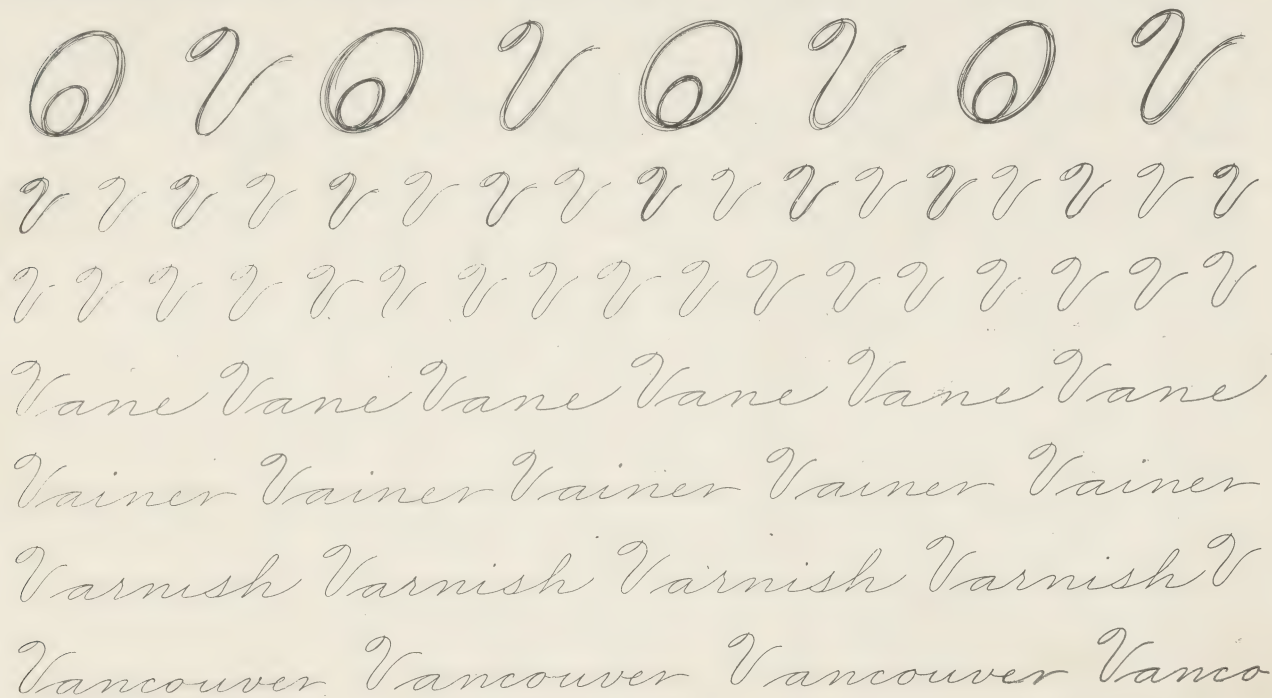 O V O V O V O V
V V V V V V V V V V V V V V V V V
V V V V V V V V V V V V V V V V V
Vane Vane Vane Vane Vane Vane
Vainer Vainer Vainer Vainer Vainer
Varnish Varnish Varnish Varnish V
Vancouver Vancouver Vancouver Vanco